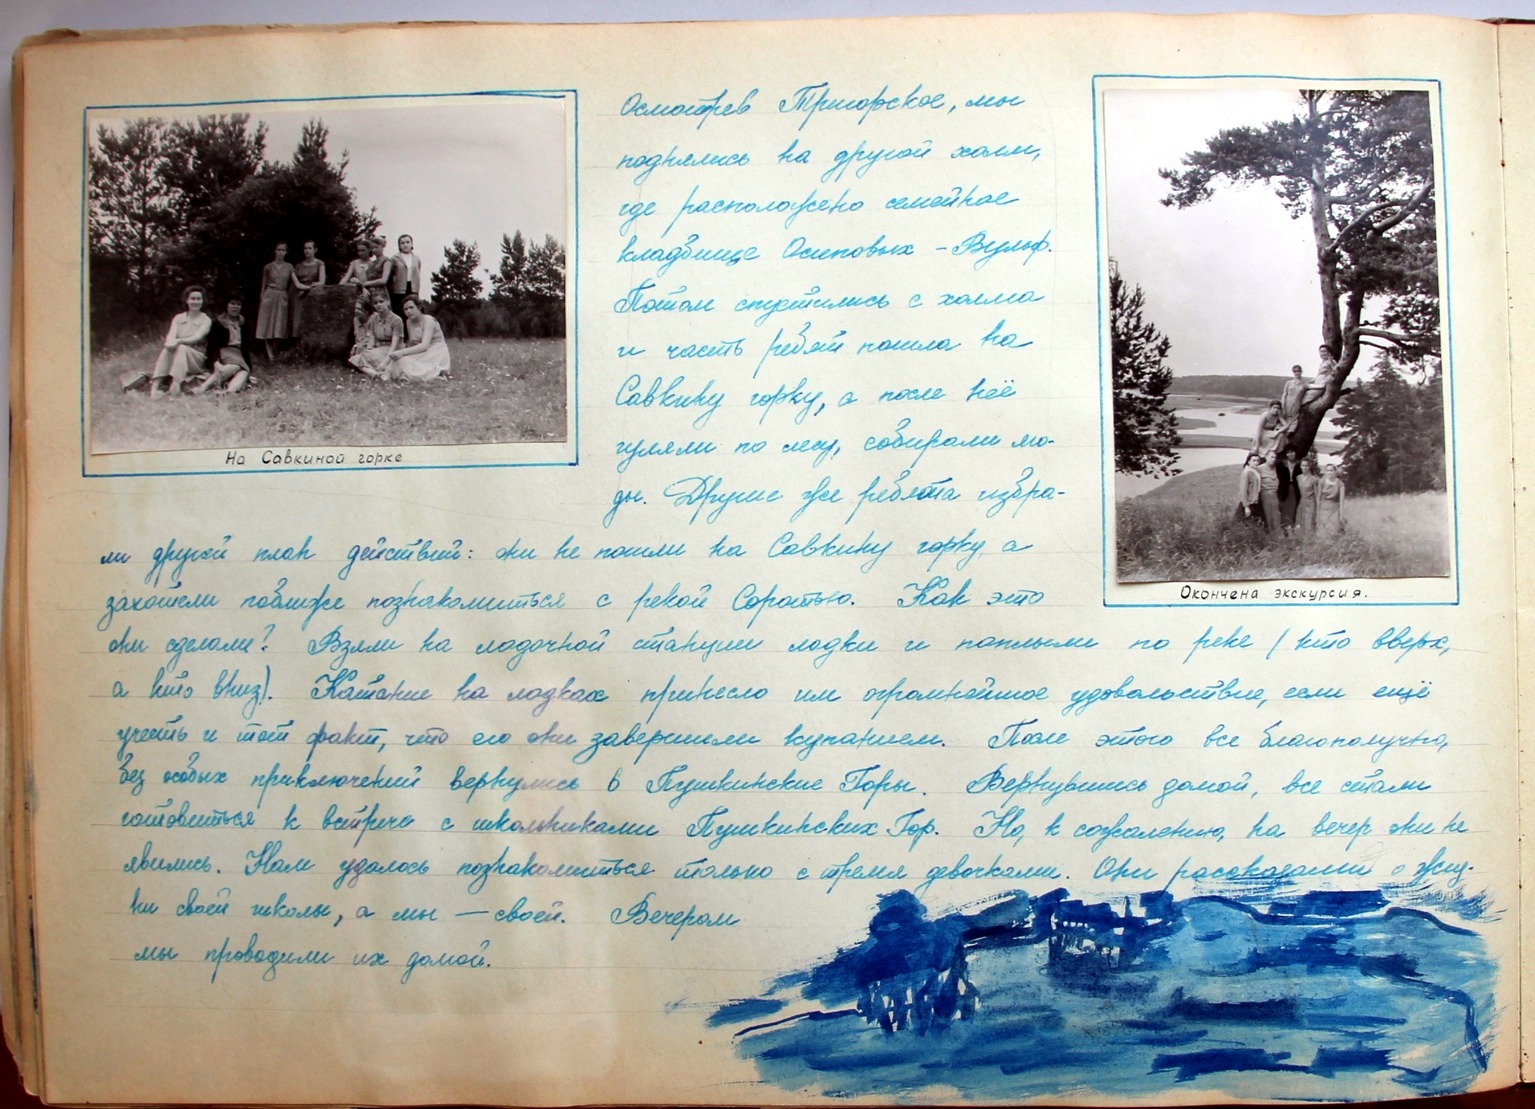 Осмотрев Тригорское, мы
поднялись на другой холм,
где расположено семейное
кладбище Осиповых - Вульф.
Потом спустились с холма
и часть ребят пошла на
Савкину горку, а после неё
гуляли по лесу, собирали яго-
ды. Другие же ребята избра-
ли другой план действий: они не пошли на Савкину горку, а
захотели поближе познакомиться с рекой Соротью. Как это
они сделали? Взяли на лодочной станции лодки и поплыли по реке (кто вверх,
а кто вниз). Катание на лодках принесло им огромнейшее удовольствие, если ещё
учесть и тот факт, что его они завершили купанием. После этого все благополучно,
без особых приключений вернулись в Пушкинские Горы. Вернувшись домой, все стали
готовиться к встрече с школьниками Пушкинских Гор. Но, к сожалению, на вечер они не
явились. Нам удалось познакомиться только с тремя девочками. Они рассказали о жиз-
ни своей школы, а мы — своей. Вечером
мы проводили их домой.
На Савкиной горке
Окончена экскурсия.